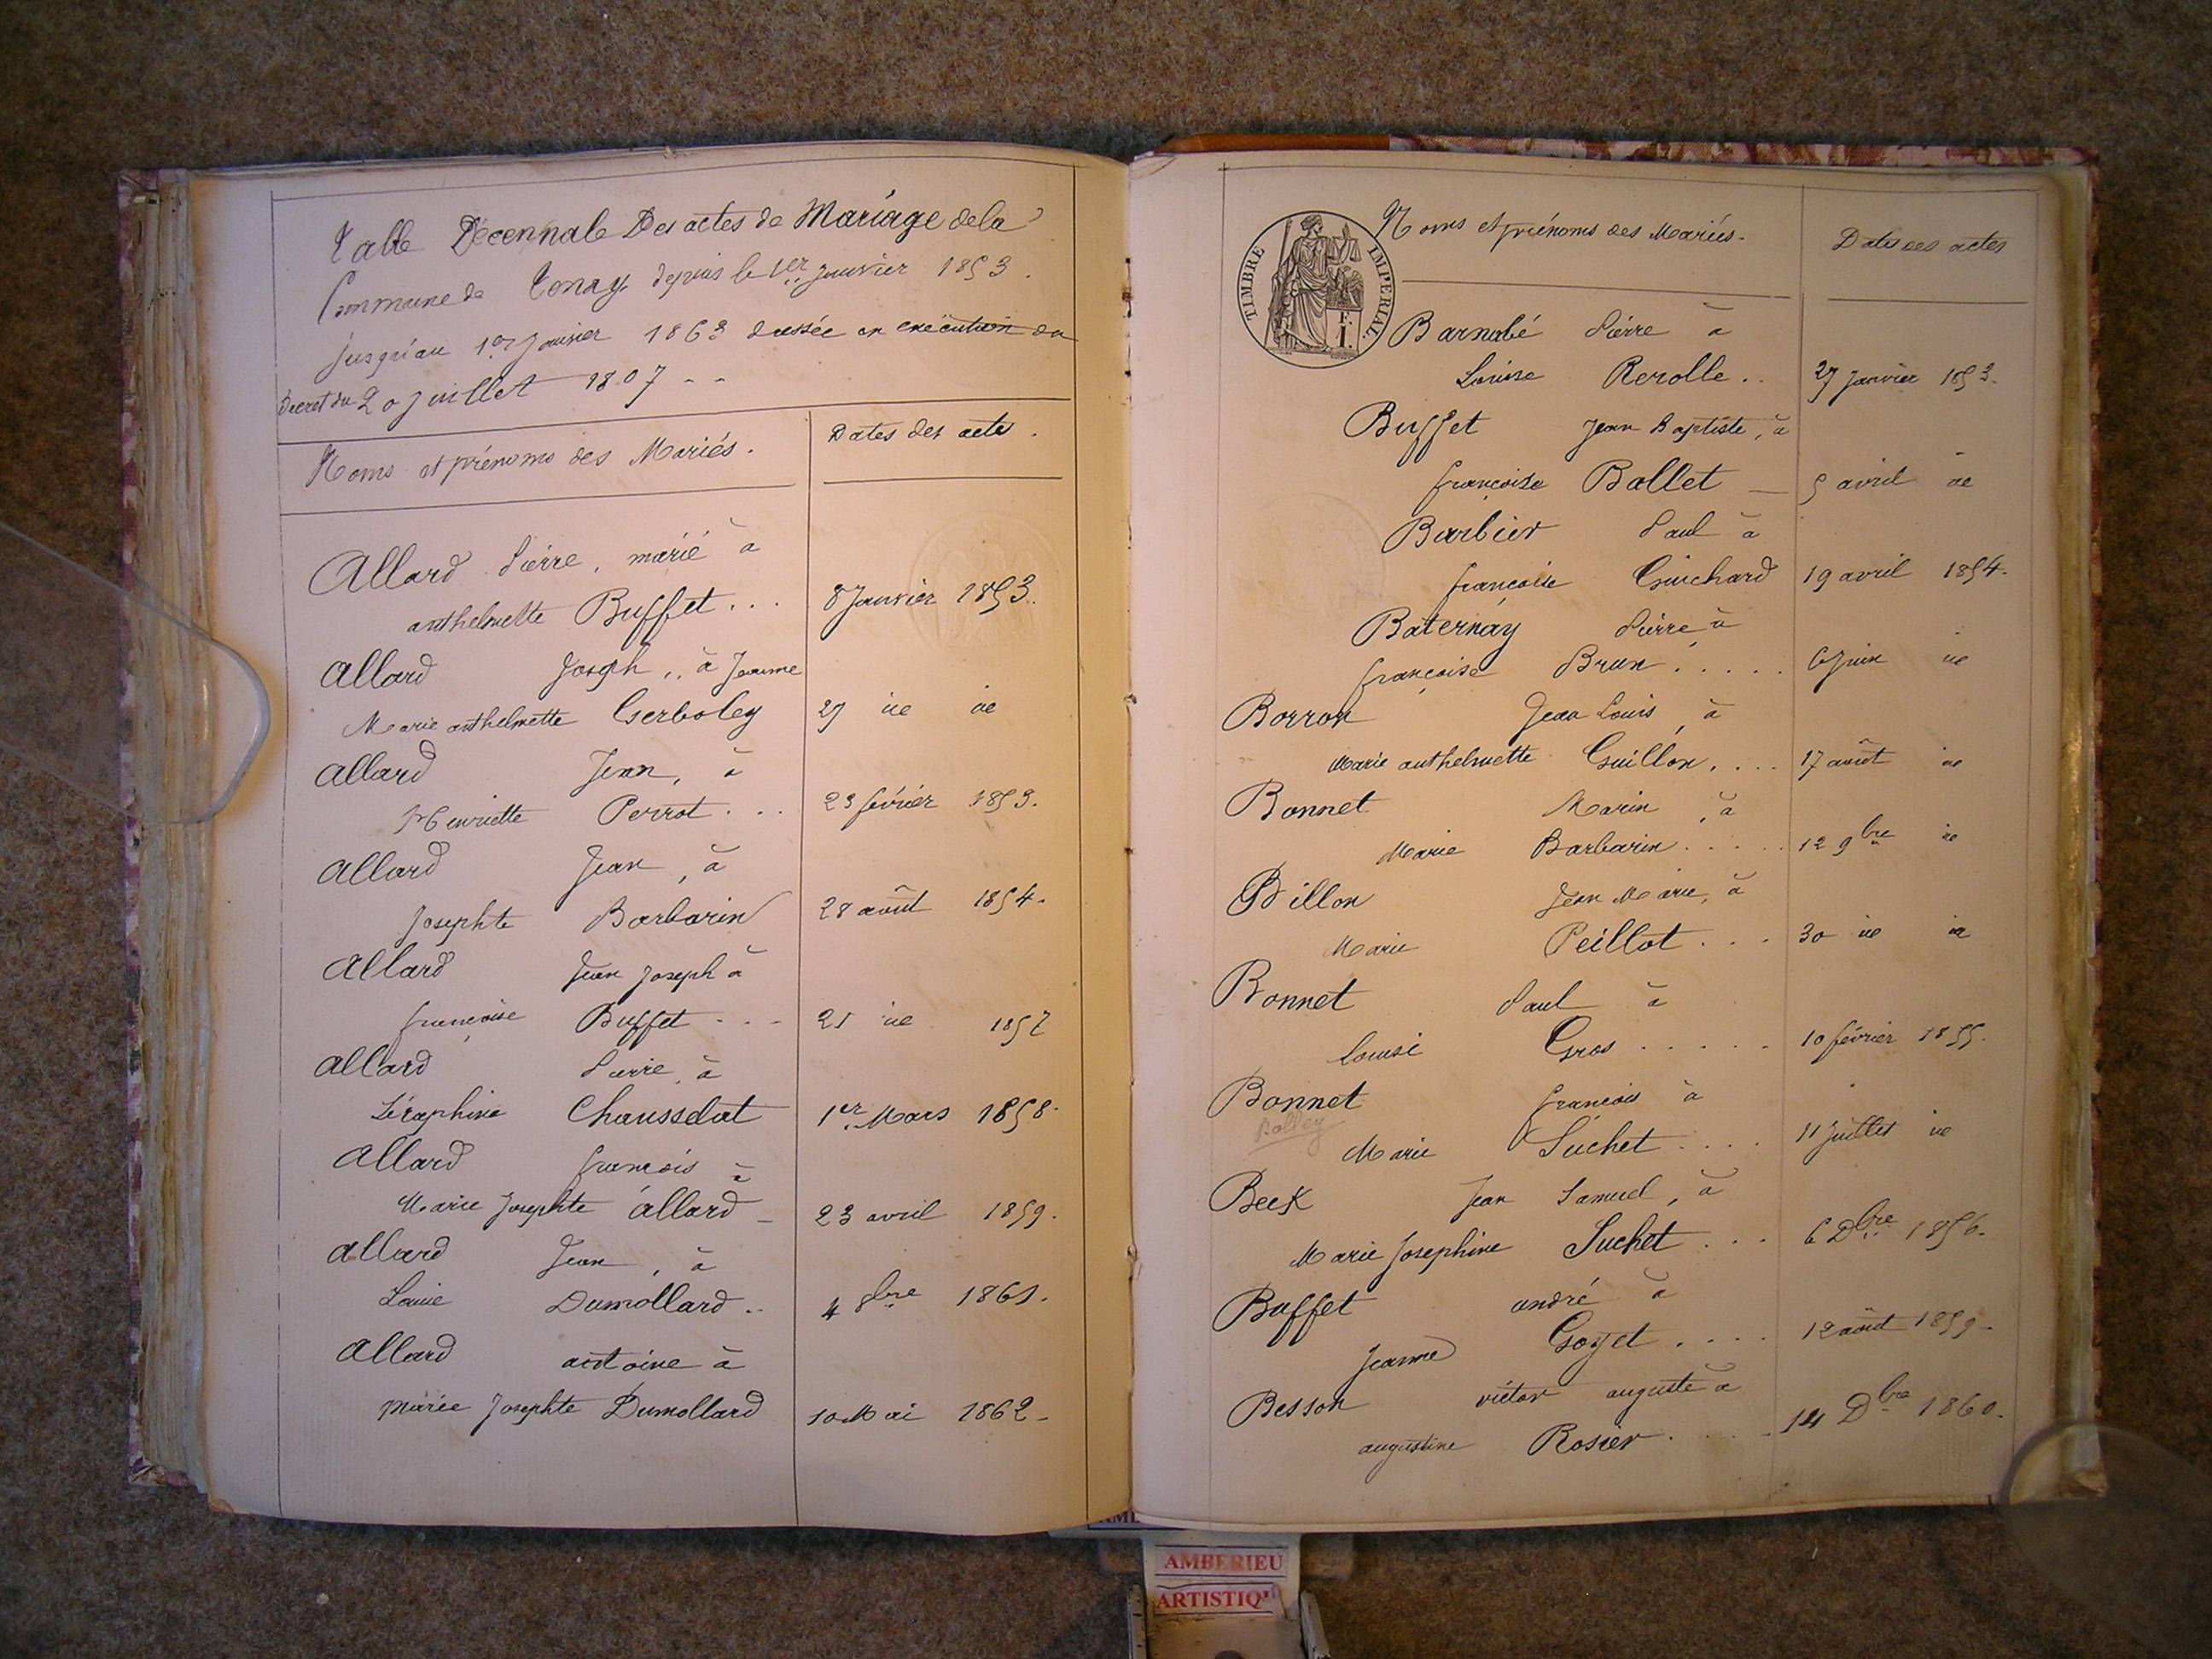 Table Décennale Des actes de Mariage de la
Commune de Tenay depuis le 1er Janvier 1853.
jusqu'au 1er Janvier 1863 dressée en exécution du
Décret du 20 juillet 1807 --
Noms et prénoms des Mariés.
Dates des actes.
Allard Pierre, marié à
anthelmette Buffet... 8 Janvier 1853.
Allard Joseph,, à Jeanne
Marie anthelmette Gerboley 27 ie ie
Allard Jean, à
Henriette Perrot... 23 février 1853.
Allard Jean, à
Josephte Barbarin 28 août 1854.
Allard Jean Joseph à
françoise Buffet... 21 ie 1857
Allard Pierre, à
Séraphine Chausselat 1er Mars 1858.
Allard françois à
Marie Josephte allard - 23 avril 1859.
Allard Jean, à
Louise Dumollard.. 4 8bre 1861.
Allard antoine à
Marie Josephte Dumollard 10 Mai 1862-
TIMBRE IMPERIAL.
F.
I.
Noms et prénoms des Mariés.
Dates des actes
Barnabé Pierre à
Louise Rerolle.. 27 Janvier 1853.
Buffet Jean Baptiste, à
françoise Ballet - 5 avril ie
Barbier Paul à
françoise Guichard 19 avril 1854.
Baternay Pierre à
françoise Brun..... 6 Juin ie
Borron Jean Louis, à
Marie anthelmette Guillon.... 17 août ie
Bonnet Marin, à
Marie Barbarin..... 12 9bre ie
Billon Jean Marie, à
Marie Peillot... 30 ie ie
Bonnet Paul à
Louise Gros..... 10 février 1855.
Bonnet françois à
Bolley
Marie Suchet.... 11 Juillet ie
Beck Jean Samuel, à
Marie Josephine Suchet... 6 Dbre 1856.
Buffet andré à
Jeanne Goyet.... 12 août 1859-
Besson victor auguste à
augustine Rosier.... 14 Dbre 1860.
AMBERIEU
ARTISTIQ